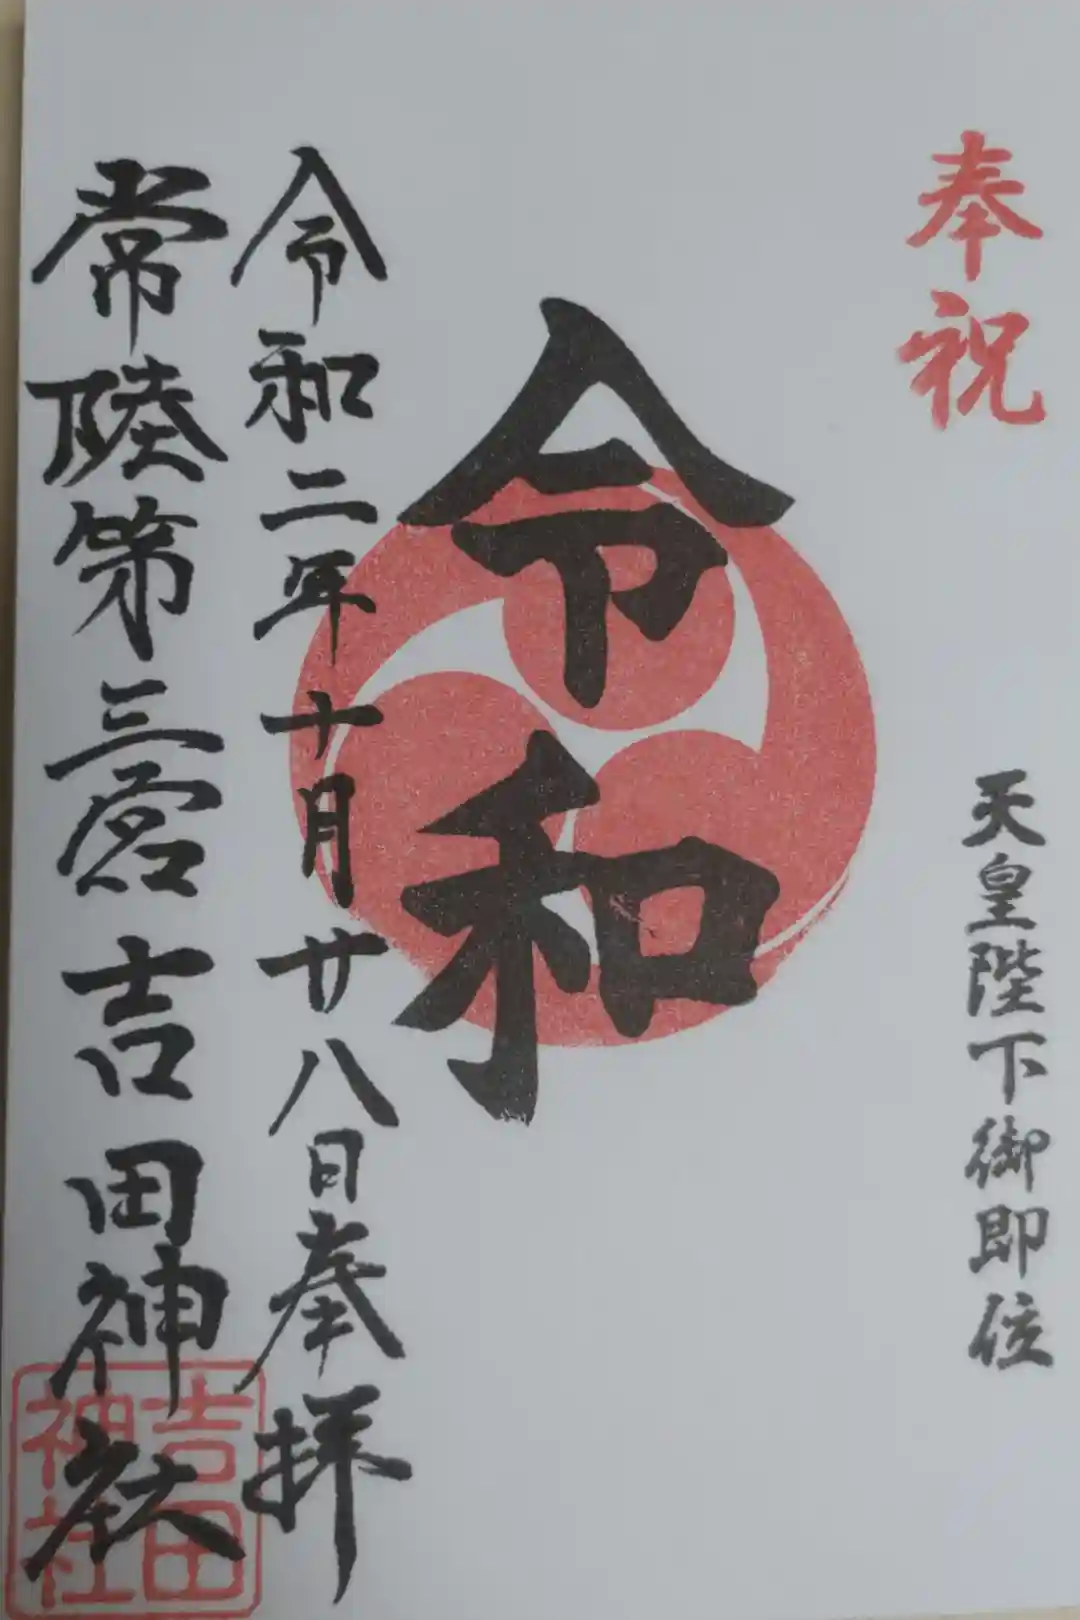 奉祝
天皇陛下御即位
令和
令和二年十月廿八日奉拝
常陸第三宮吉田神社
吉田
神社